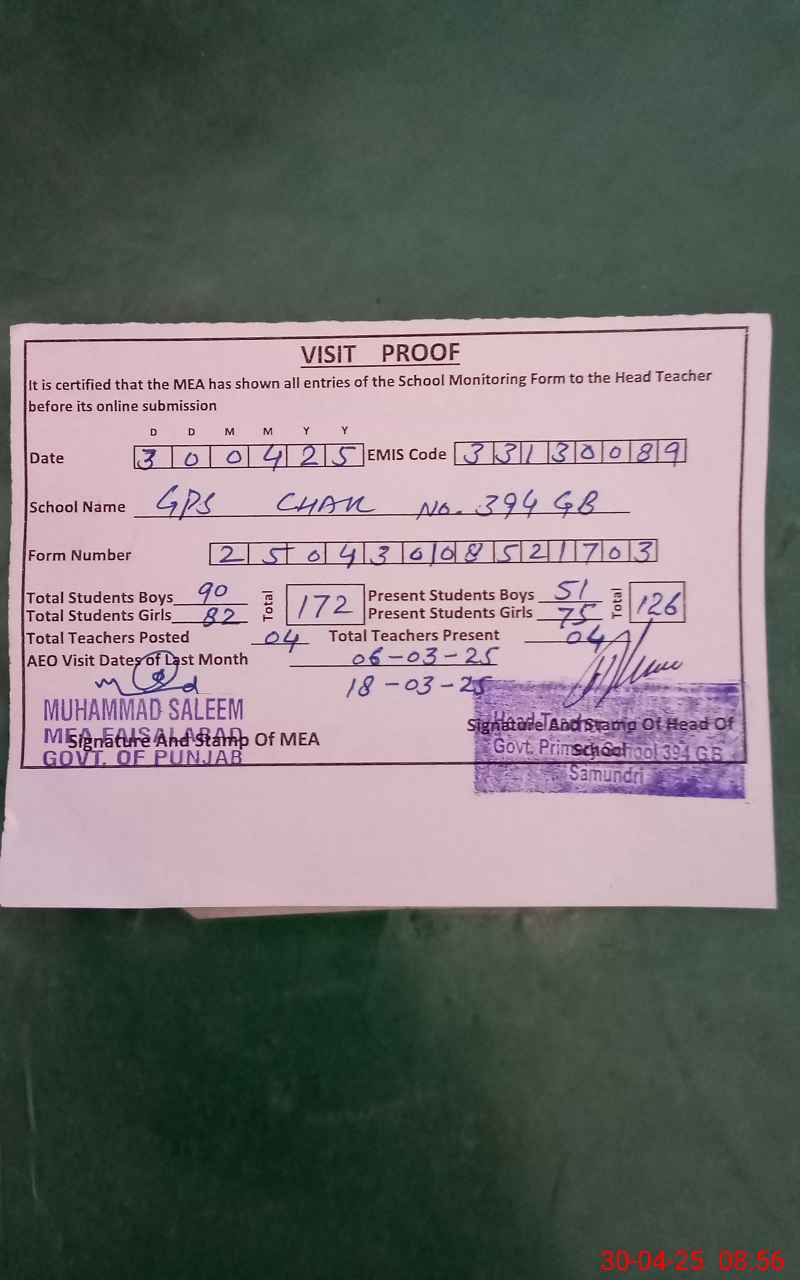 VISIT PROOF
It is certified that the MEA has shown all entries of the School Monitoring Form to the Head Teacher
before its online submission
D D M M Y Y
Date 3 0 0 4 2 5 EMIS Code 3 3 1 3 0 0 8 9
School Name GPS CHAK No. 394 GB
Form Number 2 5 0 4 3 0 0 8 5 2 1 7 0 3
Total Students Boys 90 Total 172 Present Students Boys 51 Total 126
Total Students Girls 82 Present Students Girls 75
Total Teachers Posted 04 Total Teachers Present 04
AEO Visit Dates of Last Month 06-03-25
18-03-25
MUHAMMAD SALEEM
MEA FAISALABAD
GOVT. OF PUNJAB
Signature And Stamp Of MEA
Signature And Stamp Of Head Of
School
Head Teacher
Govt. Primary School 394 GB
Samundri
30-04-25 08:56